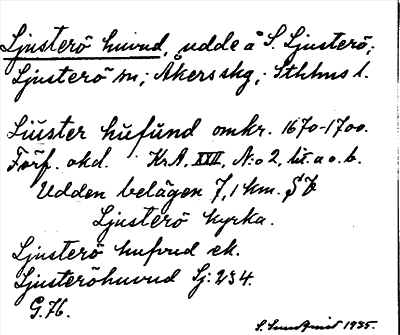 Ljusterö huvud, udde å S. Ljusterö;
Ljusterö sn; Åkers skg; Sthlms l.
Liuster hufund omkr. 1670-1700.
Förf. okd. Kr.A. XXII, No 2, lit. a o. b.
Udden belägen 7,1 km. SV
Ljusterö kyrka.
Ljusterö hufvud ek.
Ljusteröhuvud Sj: 234.
G.76.
S. 1935.